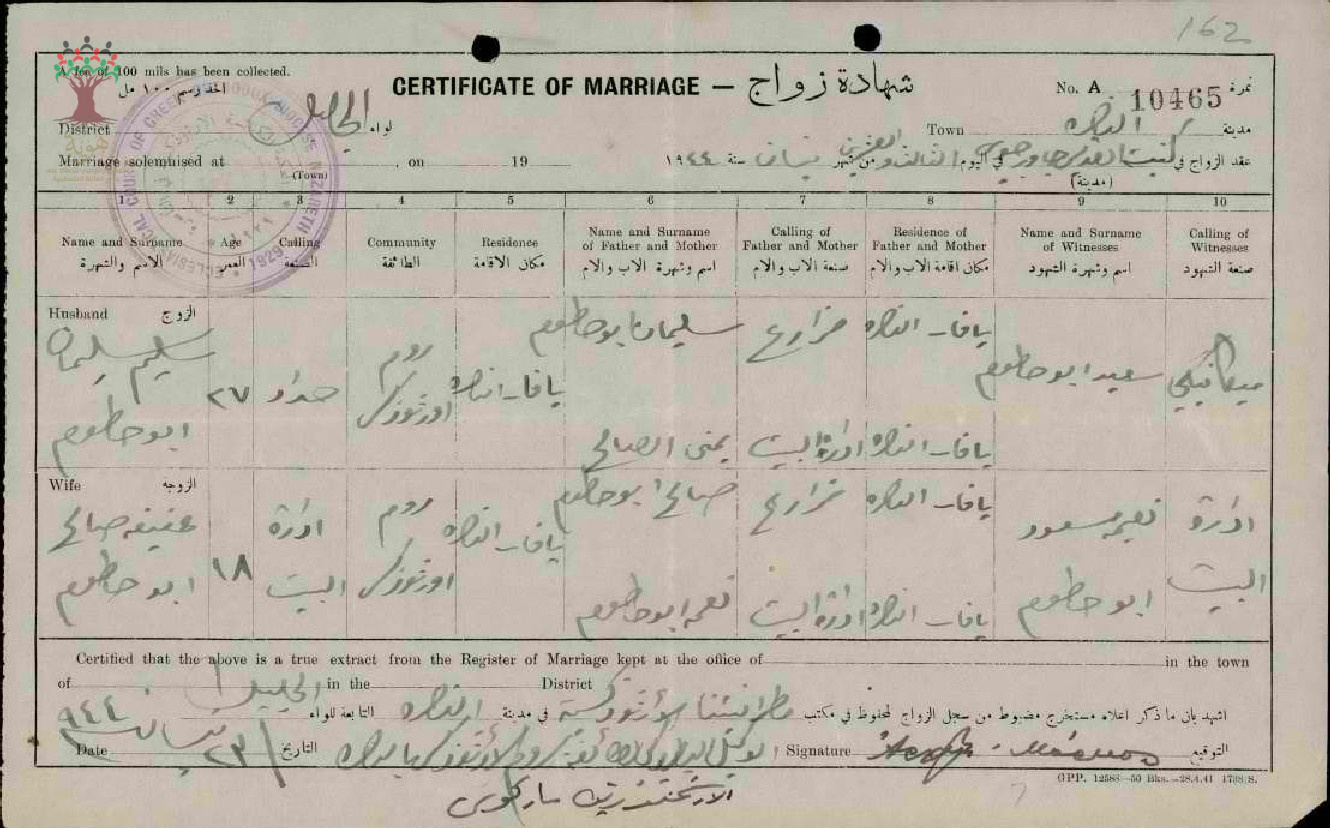 162
A fee of 100 mils has been collected.
CERTIFICATE OF MARRIAGE — شهادة زواج
No. A 10465 نمرة
District الجليل لواء
Town الناصرة مدينة
Marriage solemnised at , on 19
(Town)
عقد الزواج في كنيسة القديس جاورجيوس في اليوم الثالث والعشرين من شهر نيسان سنة ١٩٤٤
(مدينة)
1 2 3 4 5 6 7 8 9 10
Name and Surname
الاسم والشهرة
Age
العمر
Calling
الصنعة
Community
الطائفة
Residence
مكان الاقامة
Name and Surname of Father and Mother
اسم وشهرة الاب والام
Calling of Father and Mother
صنعة الاب والام
Residence of Father and Mother
مكان اقامة الاب والام
Name and Surname of Witnesses
اسم وشهرة الشهود
Calling of Witnesses
صنعة الشهود
Husband الزوج
سليم سليمان
ابو حاطوم
٢٧
حداد
روم
اورثوذكس
يافا الناصرة
سليمان ابو حاطوم
مزارع
يافا الناصرة
سعيد ابو حاطوم
ميكانيكي
يمنى الصالح
ادارة البيت
يافا الناصرة
Wife الزوجه
عفيفه صالح
ابو حاطوم
١٨
ادارة
البيت
روم
اورثوذكس
يافا الناصرة
صالح ابو حاطوم
مزارع
يافا الناصرة
مسعود
ابو حاطوم
ادارة
البيت
نعمه ابو حاطوم
ادارة البيت
يافا الناصرة
Certified that the above is a true extract from the Register of Marriage kept at the office of in the town
of in the District
اشهد بان ما ذكر اعلاه مستخرج مضبوط من سجل الزواج المحفوظ في مكتب مطرانيتنا الأرثوذكسية في مدينة الناصرة التابعة للواء الجليل
Date ٢٣ نيسان ٩٤٤ التاريخ
Signature التوقيع
الارشمندريت ماركوس
GPP. 12588—50 Bks.—28.4.41 1738/S.